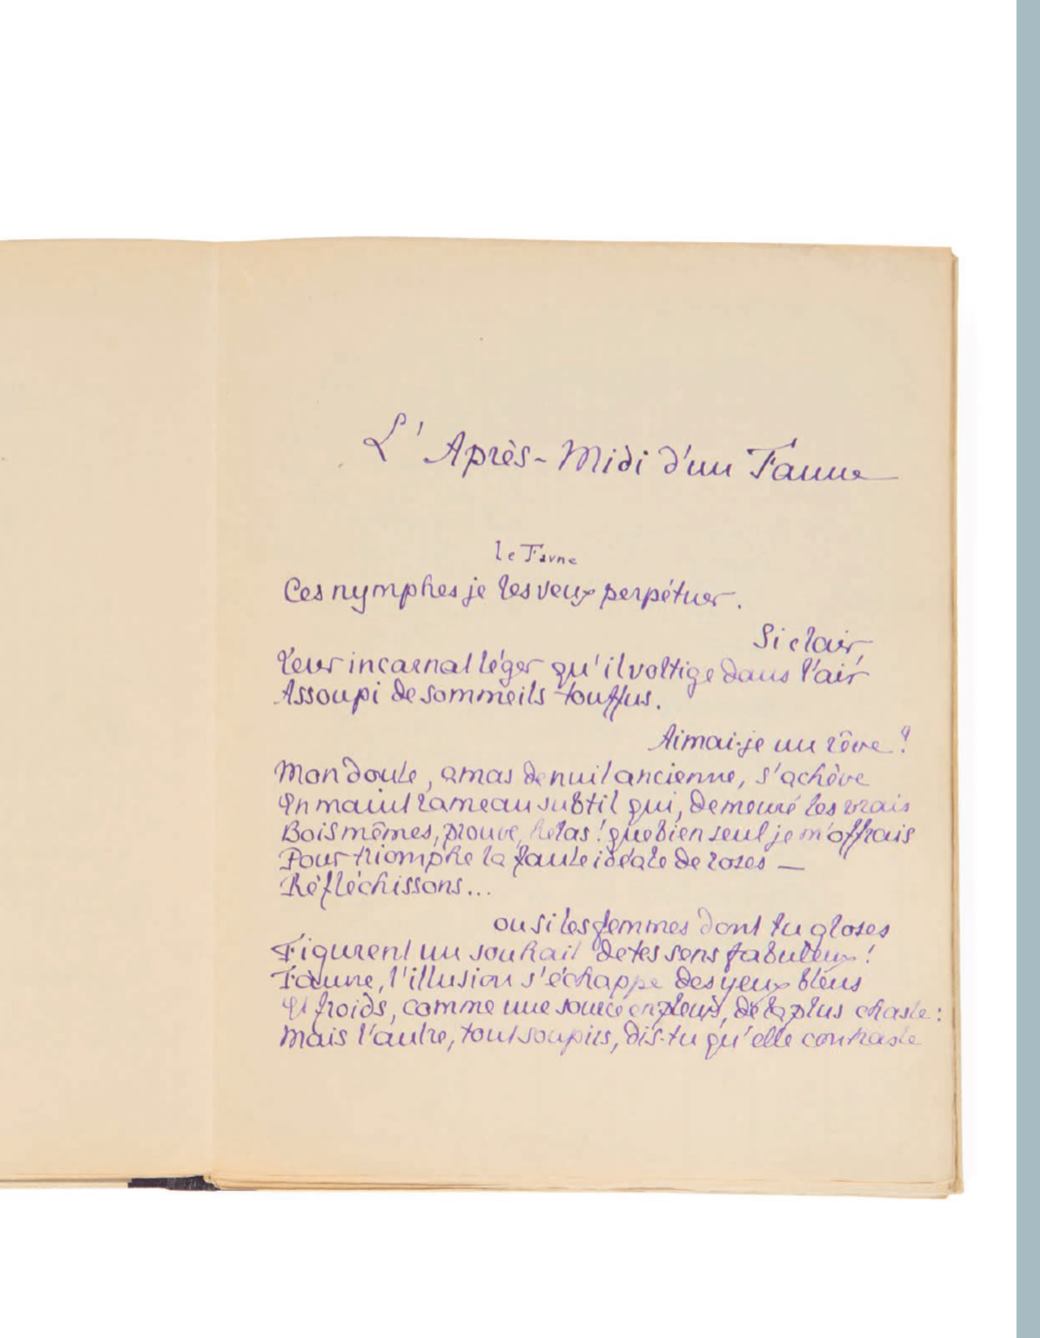 L'Après-Midi d'un Faune
le Favne
Ces nymphes je les veux perpétuer.
Si clair,
leur incarnat léger qu'il voltige dans l'air
Assoupi de sommeils touffus.
Aimai-je un rêve ?
Mon doute, amas de nuit ancienne, s'achève
En maint rameau subtil qui, demeuré les vrais
Bois mêmes, prouve, hélas ! que bien seul je m'offrais
Pour triomphe la faute idéale de roses —
Réfléchissons...
ou si les femmes dont tu gloses
Figurent un souhait de tes sens fabuleux !
Faune, l'illusion s'échappe des yeux bleus
Et froids, comme une source en pleurs, de la plus chaste :
Mais l'autre, tout soupirs, dis-tu qu'elle contraste